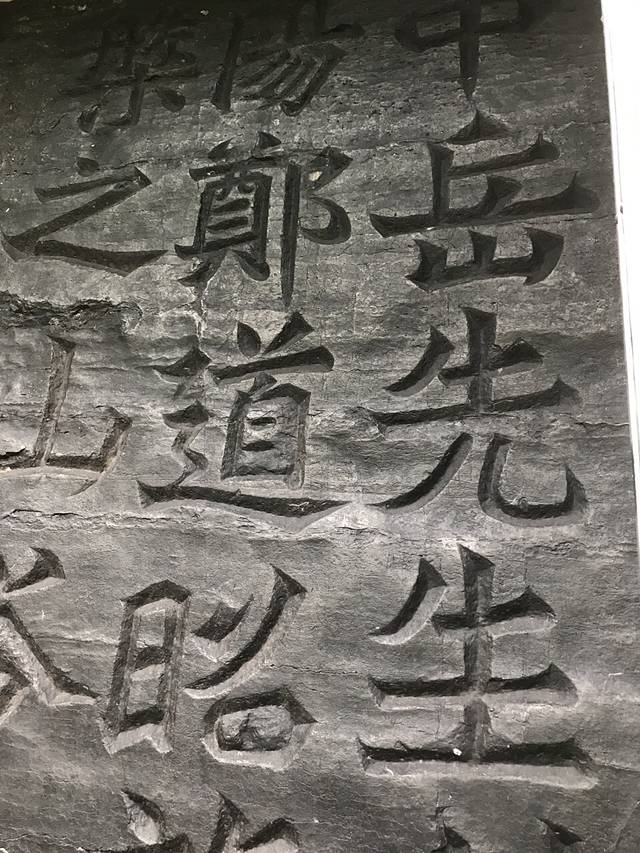 中岳先生
陽鄭道昭
槃之山谷